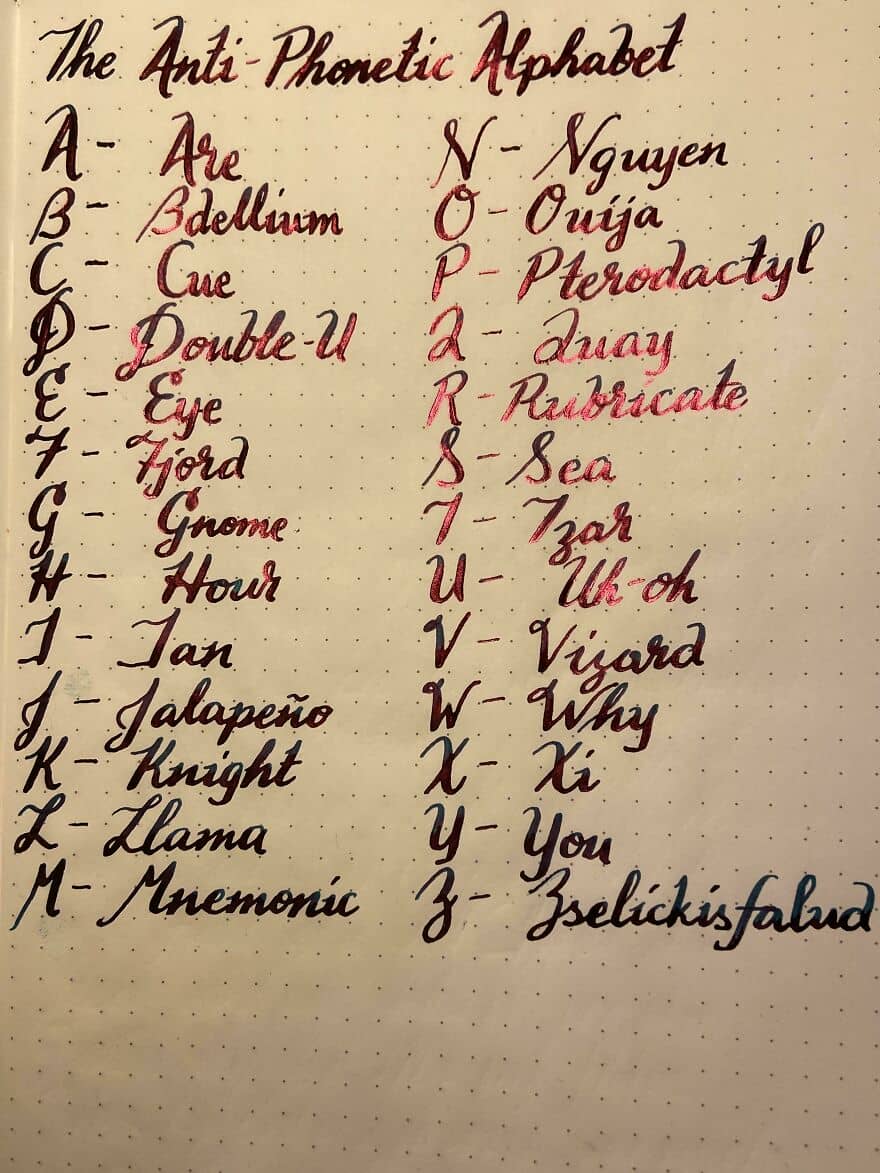 The Anti-Phonetic Alphabet
A - Are
B - Bdellium
C - Cue
D - Double-U
E - Eye
F - Fjord
G - Gnome
H - Hour
I - Ian
J - Jalapeño
K - Knight
L - Llama
M - Mnemonic
N - Nguyen
O - Ouija
P - Pterodactyl
Q - Quay
R - Rubricate
S - Sea
T - Tzar
U - Uh-oh
V - Vizard
W - Why
X - Xi
Y - You
Z - Zselickisfalud